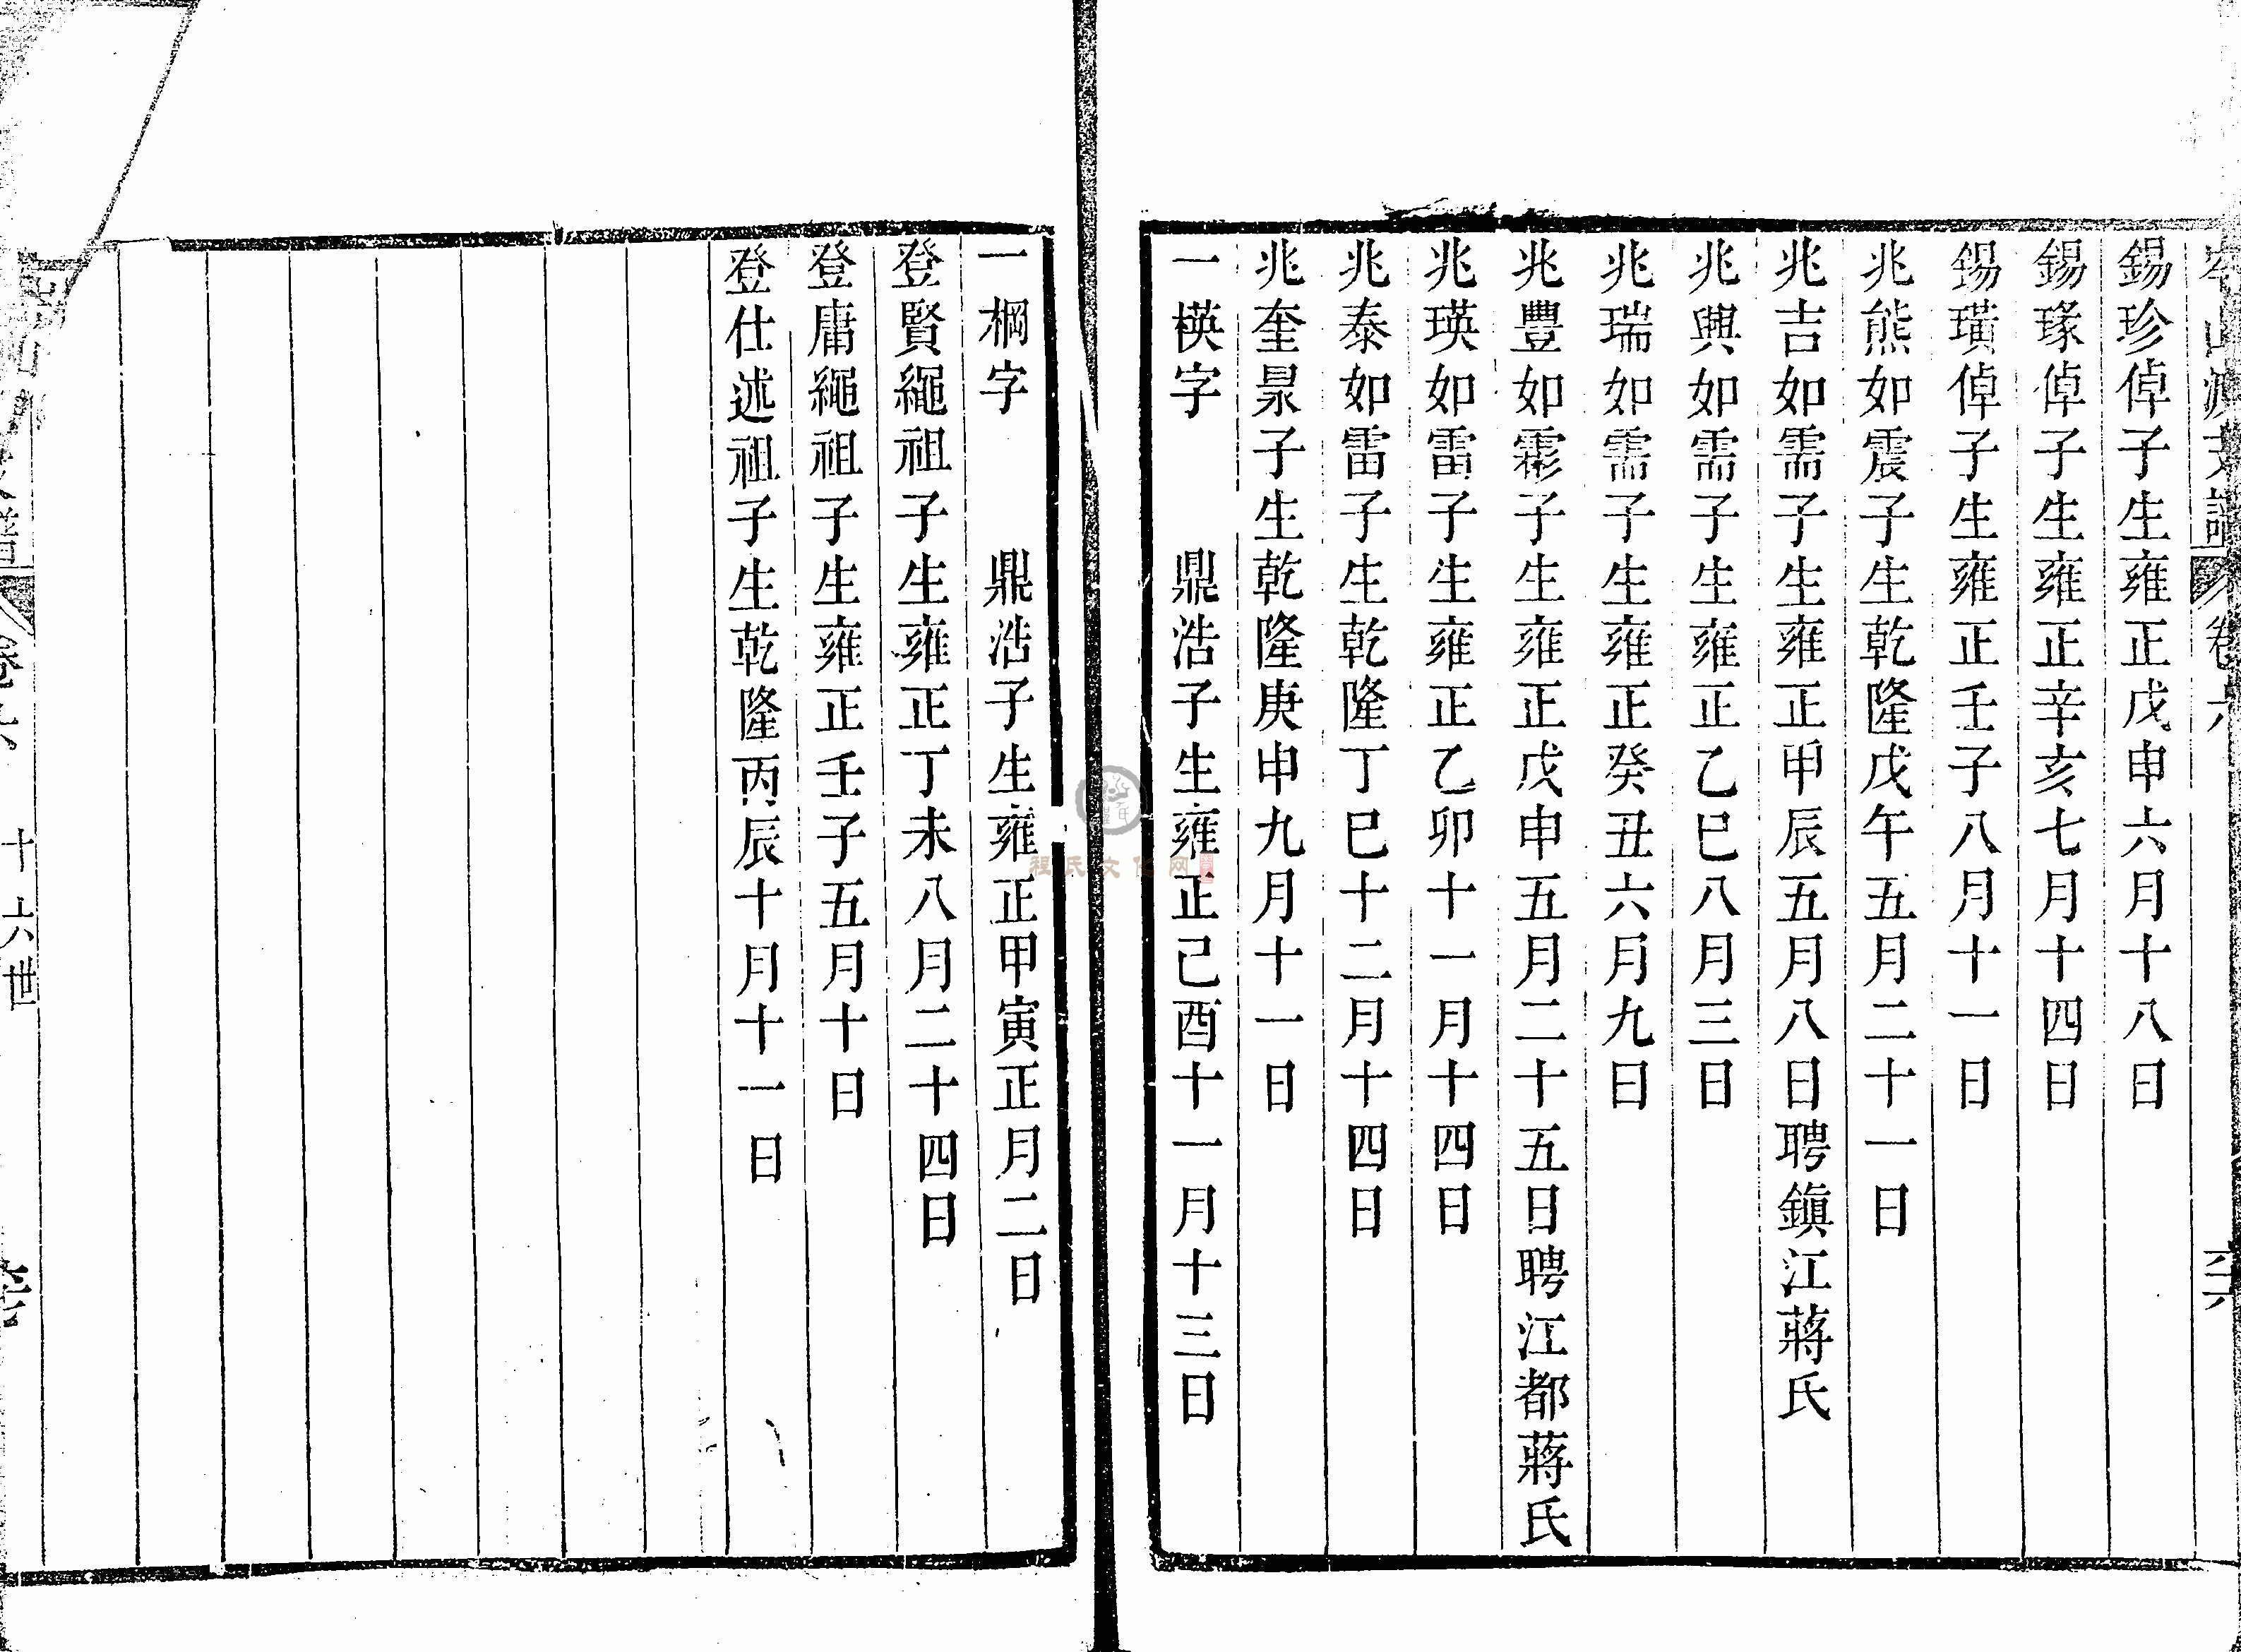 岑山渡支譜 卷六
錫珍倬子生雍正戊申六月十八日
錫瑑倬子生雍正辛亥七月十四日
錫璜倬子生雍正壬子八月十一日
兆熊如震子生乾隆戊午五月二十一日
兆吉如需子生雍正甲辰五月八日聘鎮江蔣氏
兆興如需子生雍正乙巳八月三日
兆瑞如需子生雍正癸丑六月九日
兆豐如霦子生雍正戊申五月二十五日聘江都蔣氏
兆瑛如雷子生雍正乙卯十一月十四日
兆泰如雷子生乾隆丁巳十二月十四日
兆奎杲子生乾隆庚申九月十一日
一楧字 鼎浩子生雍正己酉十一月十三日
一棡字 鼎浩子生雍正甲寅正月二日
登賢繩祖子生雍正丁未八月二十四日
登庸繩祖子生雍正壬子五月十日
登仕述祖子生乾隆丙辰十月十一日
支譜 卷六 十六世
程氏文化网